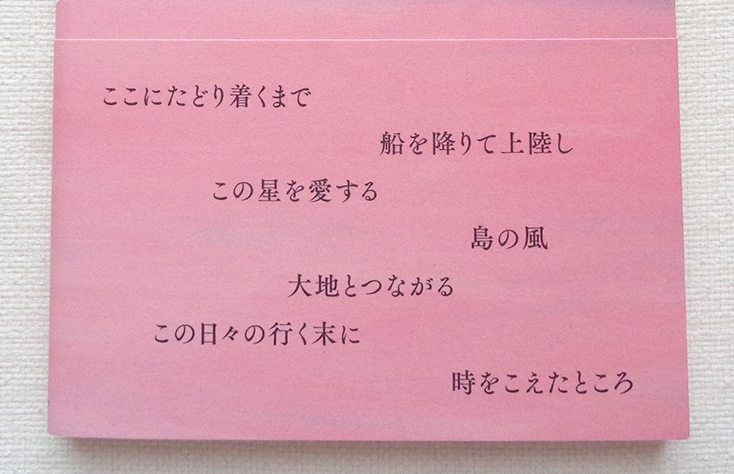 ここにたどり着くまで
船を降りて上陸し
この星を愛する
島の風
大地とつながる
この日々の行く末に
時をこえたところ